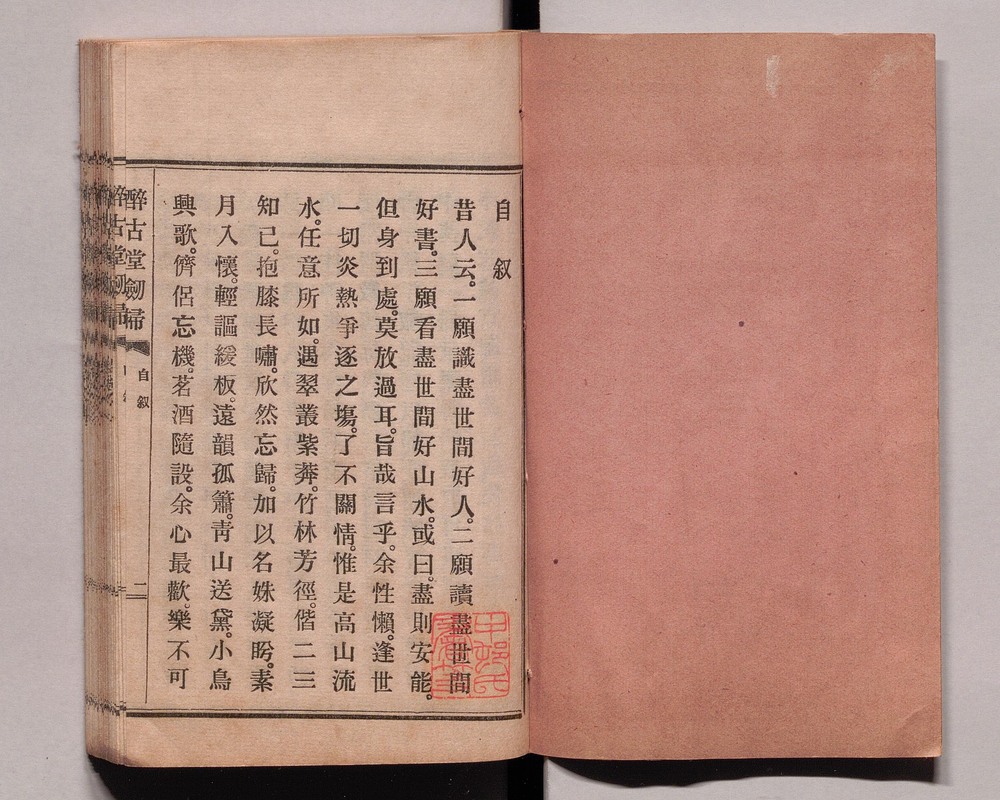 自叙
昔人云。一願識盡世間好人。二願讀盡世間
好書。三願看盡世間好山水。或曰。盡則安能。
但身到處。莫放過耳。旨哉言乎。余性懶。逢世
一切炎熱爭逐之塲。了不關情。惟是高山流
水。任意所如。遇翠叢紫莾。竹林芳徑。偕二三
知己。抱膝長嘯。欣然忘歸。加以名姝凝盻。素
月入懷。輕謳緩板。遠韻孤簫。靑山送黛。小鳥
興歌。儕侶忘機。茗酒隨設。余心最歡。樂不可
醉古堂劒掃
自叙
二